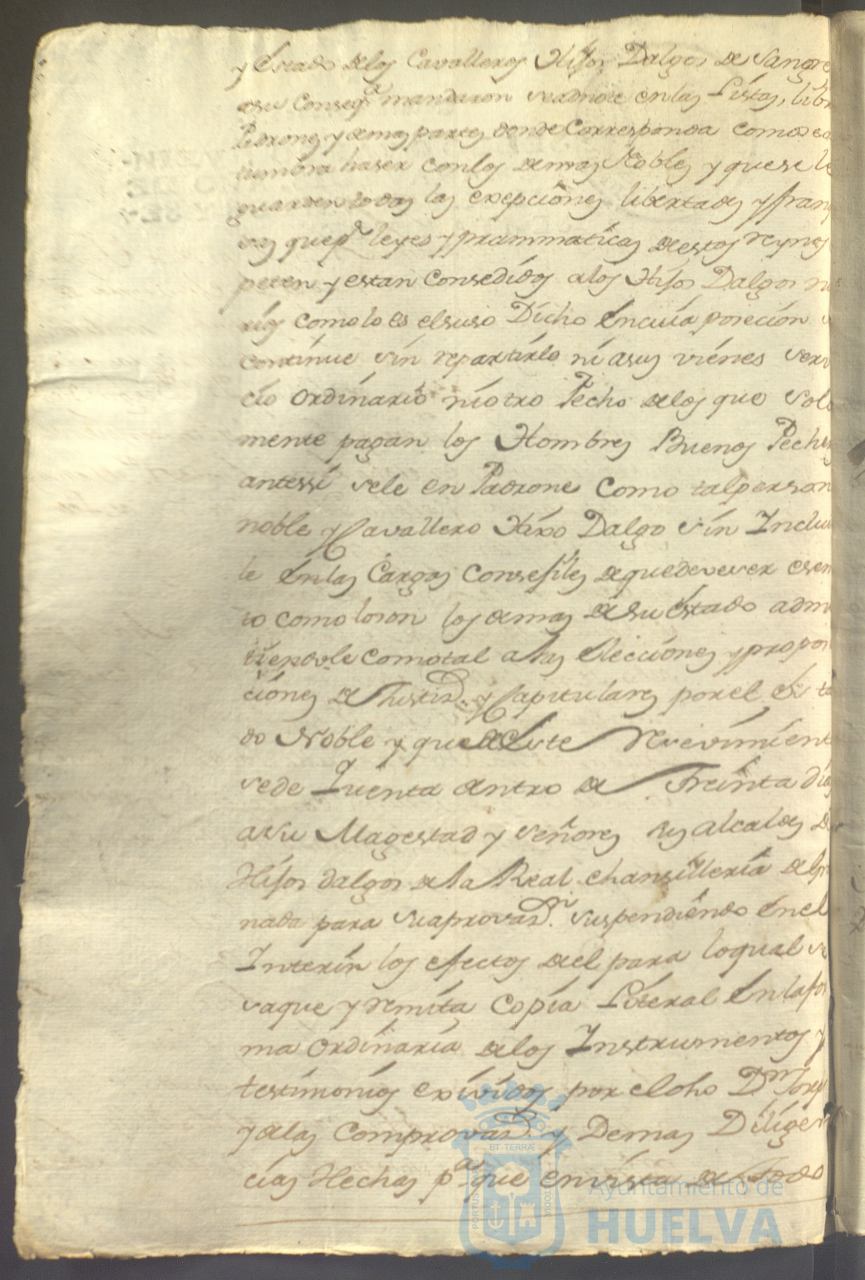 y Estado de los Cavalleros Hijos Dalgos de Sangre
asu Conseqª mandaron se adnote en las Listas, libr
Padrones y demas partes donde Corresponda como se a
tumbra haser con los demas Nobles y que se le
guarden todas las exepciones libertades y fran
zas que pr leyes y prammaticas de estos Reynos
peten y estan Consedidos a los Hijos Dalgos no
rios como lo es el suso Dicho En cuia poseción s
continue sin repartirle ni a sus viénes serv
cio Ordinario ni otro Pecho de los que sola
mente pagan los Hombres Buenos Peche
antessi se le en Padrone Como tal person
noble y Cavallero Hixo Dalgo sin Inclu
le En las Cargas Consejiles de que deve ser esen
to como lo son los demas de su Estado admi
tiendole como tal a las Elecciones y propo
ciónes de Justiª y Capitulares por el Esta
do Noble y que de Este Resevimient
se de Quenta dentro de Treinta dia
a su Magestad y señores sus alcaldes de
Hijos dalgos de la Real chansilleria de Gra
nada para su aprovaon suspendiendo En el
Interin los efectos del para lo qual se
saque y remita Copia Literal En la for
ma Ordinaria de los Instrumentos y
testimonios exividos por el dho Dn Josep
y de las Comprovas y Demas Diligen
cias Hechas pª que en vista de todo
BT TERRÆ
PORTUS
CUSTODIA
Ayuntamiento de
HUELVA